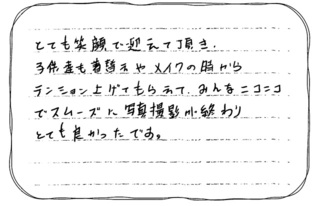 とても笑顔で迎えて頂き、
子供達も着替えやメイクの時から
テンション上げてもらえて、みんなニコニコ
でスムーズに写真撮影が終わり
とても良かったです。